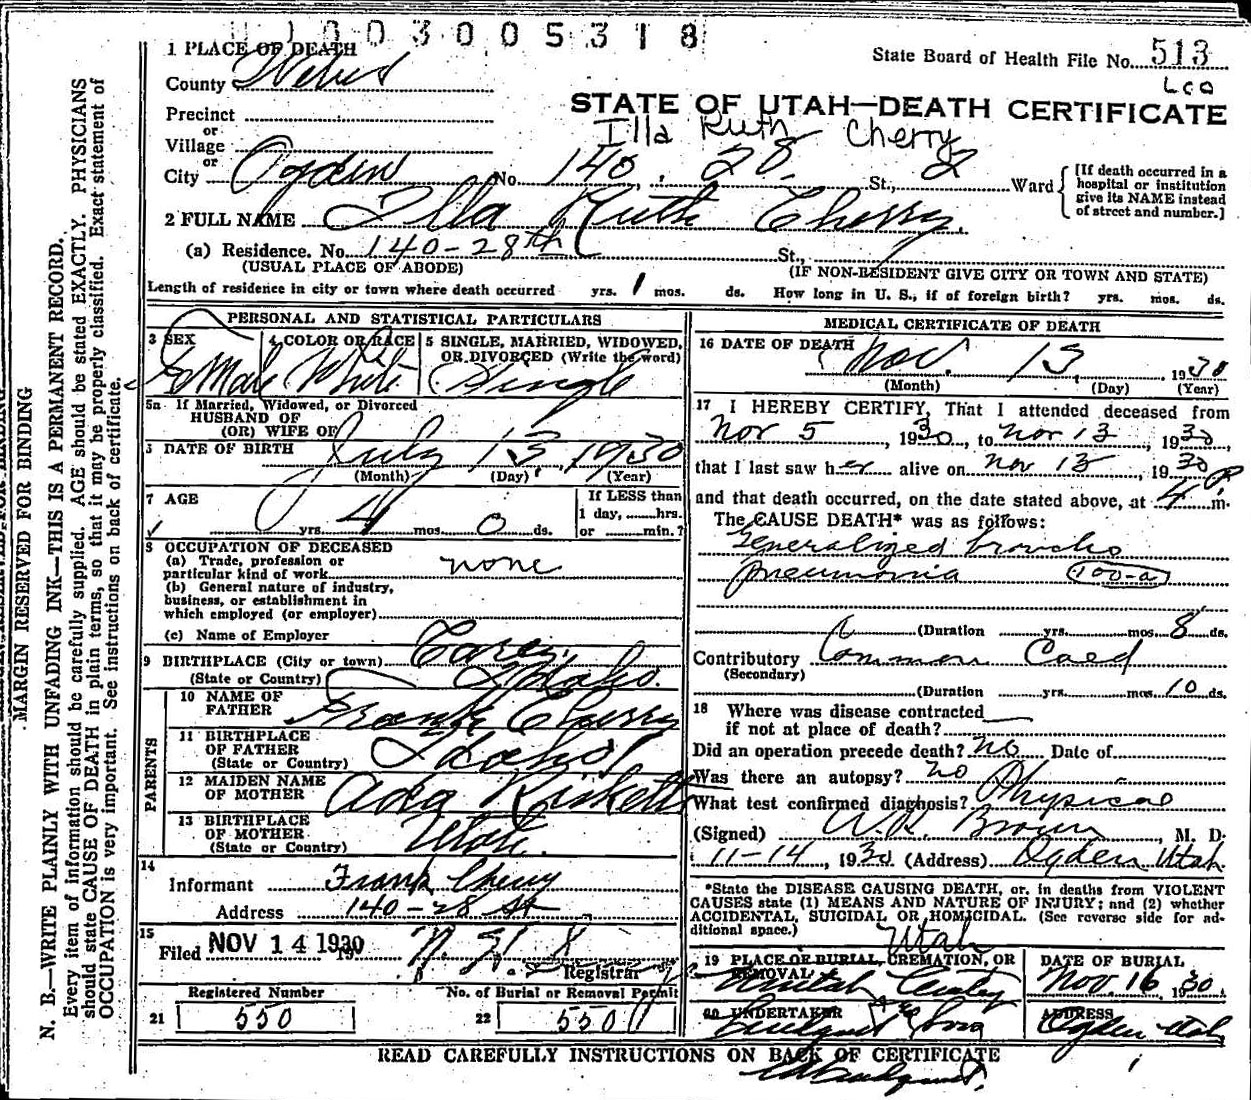 U 1003005318
State Board of Health File No. 513
Lco
1 PLACE OF DEATH
County Weber
STATE OF UTAH—DEATH CERTIFICATE
Illa Ruth Cherry
Precinct
or
Village
or
City Ogden No. 140, 28. St., 2 Ward
[If death occurred in a hospital or institution give its NAME instead of street and number.]
2 FULL NAME Illa Ruth Cherry.
(a) Residence. No. 140-28th St.,
(USUAL PLACE OF ABODE) (IF NON-RESIDENT GIVE CITY OR TOWN AND STATE)
Length of residence in city or town where death occurred yrs. 1 mos. ds. How long in U. S., if of foreign birth? yrs. mos. ds.
PERSONAL AND STATISTICAL PARTICULARS
3 SEX 4 COLOR OR RACE 5 SINGLE, MARRIED, WIDOWED, OR DIVORCED (Write the word)
White Single
5a If Married, Widowed, or Divorced
HUSBAND OF
(OR) WIFE OF
6 DATE OF BIRTH July 13, 1930
(Month) (Day) (Year)
7 AGE
yrs. 4 mos. 0 ds.
If LESS than
1 day, hrs.
or min.?
8 OCCUPATION OF DECEASED
(a) Trade, profession or
particular kind of work none
(b) General nature of industry,
business, or establishment in
which employed (or employer)
(c) Name of Employer
9 BIRTHPLACE (City or town) Carey.
(State or Country) Idaho.
PARENTS
10 NAME OF FATHER Frank Cherry
11 BIRTHPLACE OF FATHER (State or Country) Idaho
12 MAIDEN NAME OF MOTHER Ada
13 BIRTHPLACE OF MOTHER (State or Country) Utah.
14
Informant Frank Cherry
Address 140-28 St
15 Filed NOV 14 1930
Registrar
Registered Number No. of Burial or Removal Permit
21 550 22 550
MEDICAL CERTIFICATE OF DEATH
16 DATE OF DEATH Nov. 13, 1930
(Month) (Day) (Year)
17 I HEREBY CERTIFY, That I attended deceased from
Nov 5, 1930, to Nov 13, 1930,
that I last saw her alive on Nov 13, 1930
and that death occurred, on the date stated above, at 4 P. m.
The CAUSE DEATH* was as follows:
Generalized broncho
pneumonia 100-a
(Duration yrs. mos. 8 ds.
Contributory Common Coed
(Secondary)
(Duration yrs. mos. 10 ds.
18 Where was disease contracted
if not at place of death?
Did an operation precede death? no Date of
Was there an autopsy? no
What test confirmed diagnosis? Physical
(Signed) Brown, M. D.
11-14, 1930 (Address) Ogden Utah
*State the DISEASE CAUSING DEATH, or, in deaths from VIOLENT
CAUSES state (1) MEANS AND NATURE OF INJURY; and (2) whether
ACCIDENTAL, SUICIDAL OR HOMICIDAL. (See reverse side for additional space.)
Utah
19 PLACE OF BURIAL, CREMATION, OR REMOVAL DATE OF BURIAL
Nov. 16, 1930.
20 UNDERTAKER ADDRESS
Ogden Utah
READ CAREFULLY INSTRUCTIONS ON BACK OF CERTIFICATE
MARGIN RESERVED FOR BINDING
N. B.—WRITE PLAINLY WITH UNFADING INK—THIS IS A PERMANENT RECORD.
Every item of information should be carefully supplied. AGE should be stated EXACTLY. PHYSICIANS
should state CAUSE OF DEATH in plain terms, so that it may be properly classified. Exact statement of
OCCUPATION is very important. See instructions on back of certificate.